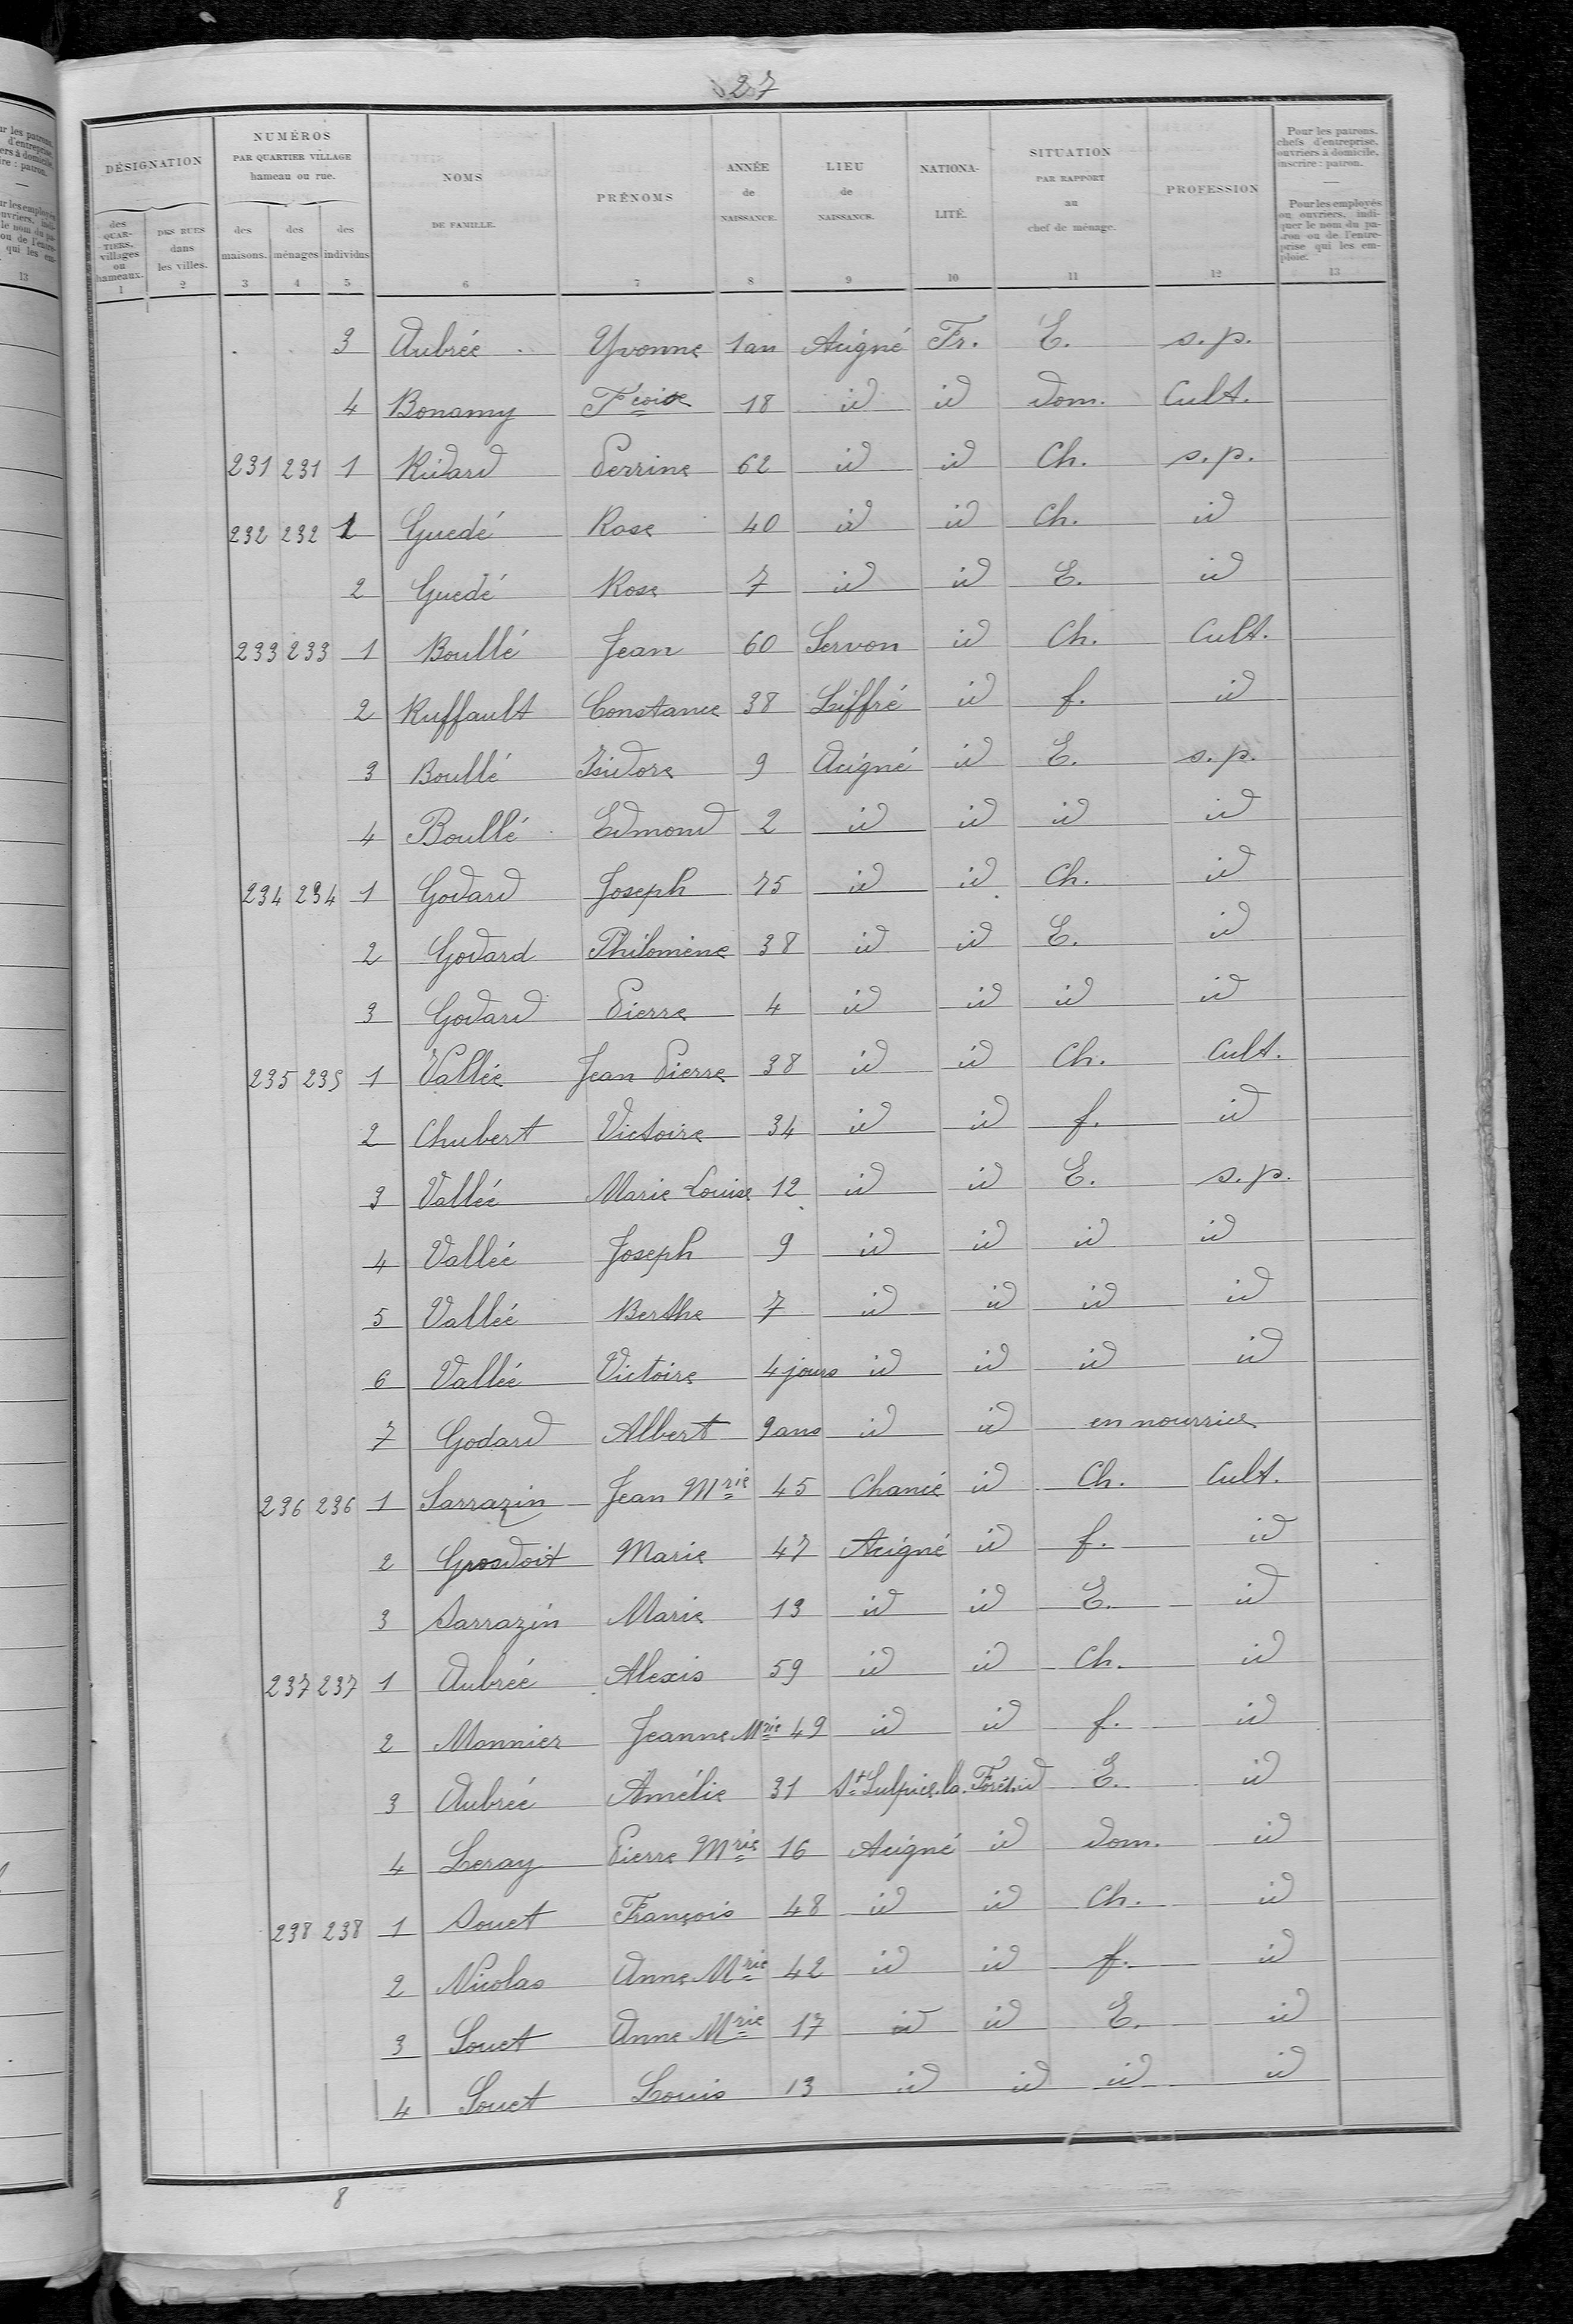 27
DÉSIGNATION
NUMÉROS
PAR QUARTIER VILLAGE
hameau ou rue.
NOMS
DE FAMILLE.
PRÉNOMS
ANNÉE
de
NAISSANCE.
LIEU
de
NAISSANCE.
NATIONA-
LITÉ.
SITUATION
PAR RAPPORT
au
chef de ménage.
PROFESSION
Pour les patrons,
chefs d'entreprise,
ouvriers à domicile,
inscrire : patron.
Pour les employés
ou ouvriers, indi-
quer le nom du pa-
tron ou de l'entre-
prise qui les em-
ploie.
des
QUAR-
TIERS,
villages
ou
hameaux.
DES RUES
dans
les villes.
des
maisons.
des
ménages
des
individus
1 2 3 4 5 6 7 8 9 10 11 12 13
3 Aubrée Yvonne 1 an Acigné Fr. E. s.p.
4 Bonamy Fçoise 18 id id dom. Cult.
231 231 1 Ridard Perrine 62 id id Ch. s.p.
232 232 1 Guedé Rose 40 id id Ch. id
2 Guedé Rose 7 id id E. id
233 233 1 Boullé Jean 60 Servon id Ch. Cult.
2 Ruffault Constance 38 Liffré id f. id
3 Boullé Isidore 9 Acigné id E. s.p.
4 Boullé Edmond 2 id id id id
234 234 1 Godard Joseph 75 id id Ch. id
2 Godard Philomène 38 id id E. id
3 Godard Pierre 4 id id id id
235 235 1 Vallée Jean Pierre 38 id id Ch. Cult.
2 Chubert Victoire 34 id id f. id
3 Vallée Marie Louise 12 id id E. s.p.
4 Vallée Joseph 9 id id id id
5 Vallée Berthe 7 id id id id
6 Vallée Victoire 4 jours id id id id
7 Godard Albert 9 ans id id en nourrice
236 236 1 Sarrazin Jean Mrie 45 Chancé id Ch. Cult.
2 Grosdoit Marie 47 Acigné id f. id
3 Sarrazin Marie 13 id id E. id
237 237 1 Aubrée Alexis 59 id id Ch. id
2 Monnier Jeanne Mrie 49 id id f. id
3 Aubrée Amélie 31 St Sulpice.la.Forêt id E. id
4 Leray Pierre Mrie 16 Acigné id dom. id
238 238 1 Souet François 48 id id Ch. id
2 Nicolas Anne Mrie 42 id id f. id
3 Souet Anne Mrie 17 id id E. id
4 Souet Louis 13 id id id id
8